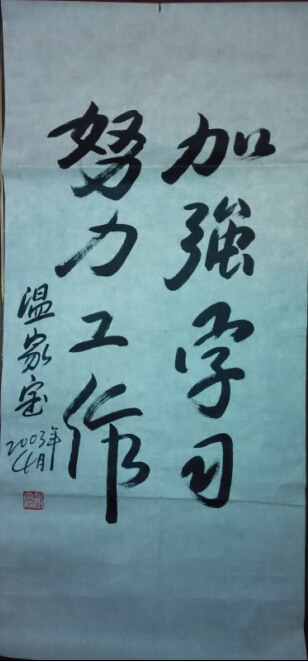 加強学习
努力工作
温家宝
2003年
4月